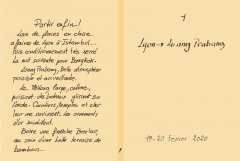 Partir enfin!
Loin de places en chase
affaires de Lyon à Istanbul...
Puis conditionnement très serré
la nuit suivante pour Bangkok.
Luang Prabang, Belle atmosphère
paisible et accueillante.
Le Mékong large, calme,
puissant: des bateaux glissent sur
l'onde. Couchers, temples et cha-
leur me ravissent. Les ornements
d'or scintillent.
Boire une fraîche Beerlao,
au sein d'une belle terrasse de
bambous...
1
1
Lyon → Luang Prabang
19-20 Février 2020